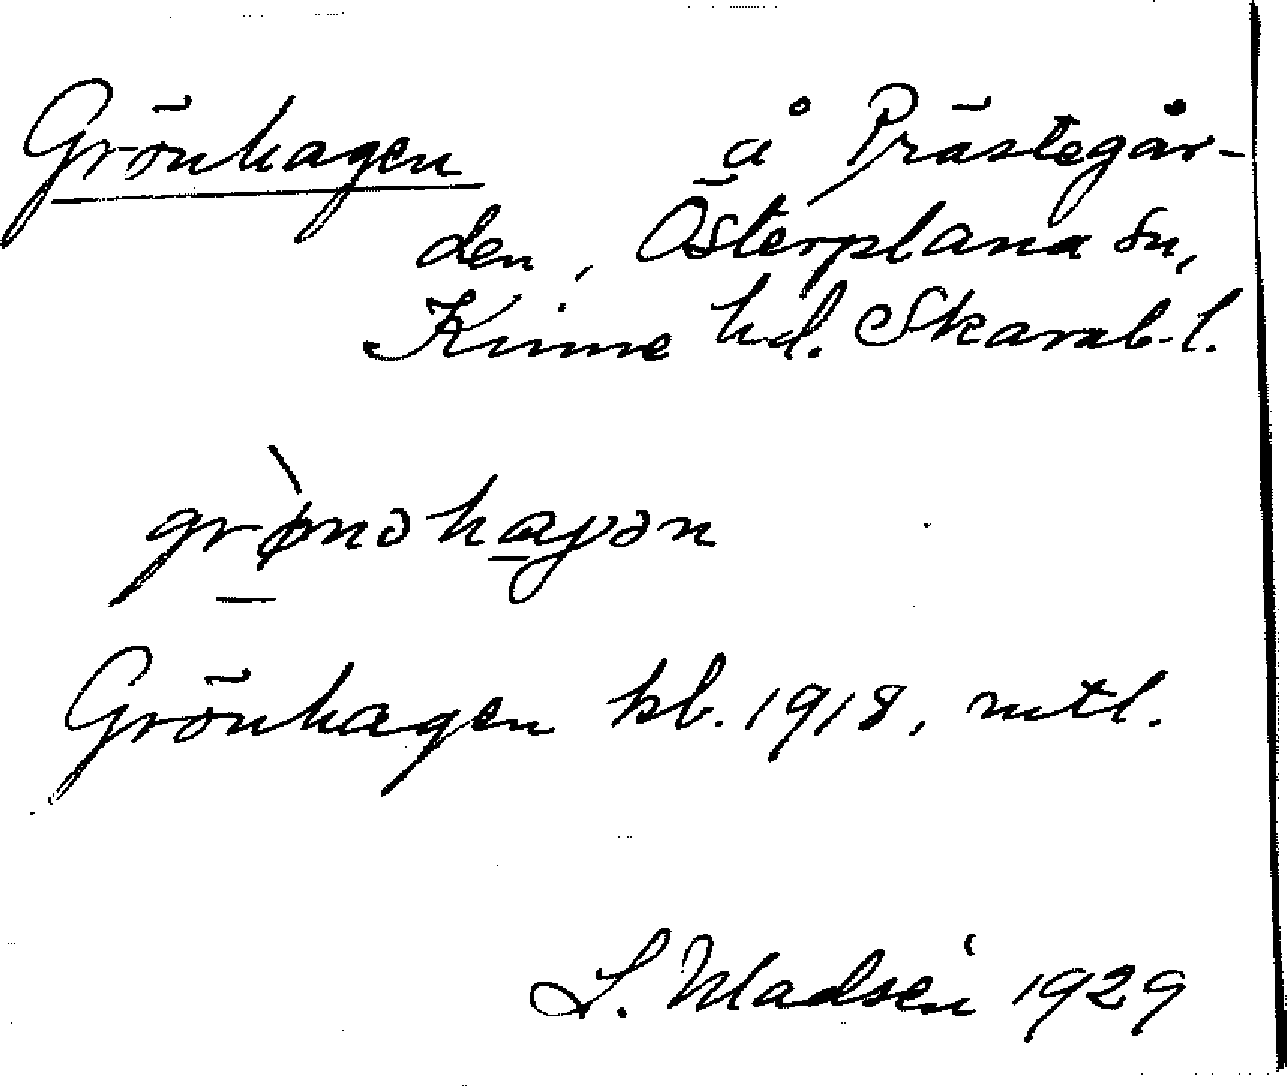 Grönhagen å Prästegår-
den, Österplana sn,
Kinne hd. Skarab. l.
grønəhaɡən
Grönhagen kb. 1918, mtl.
L. Madsén 1929